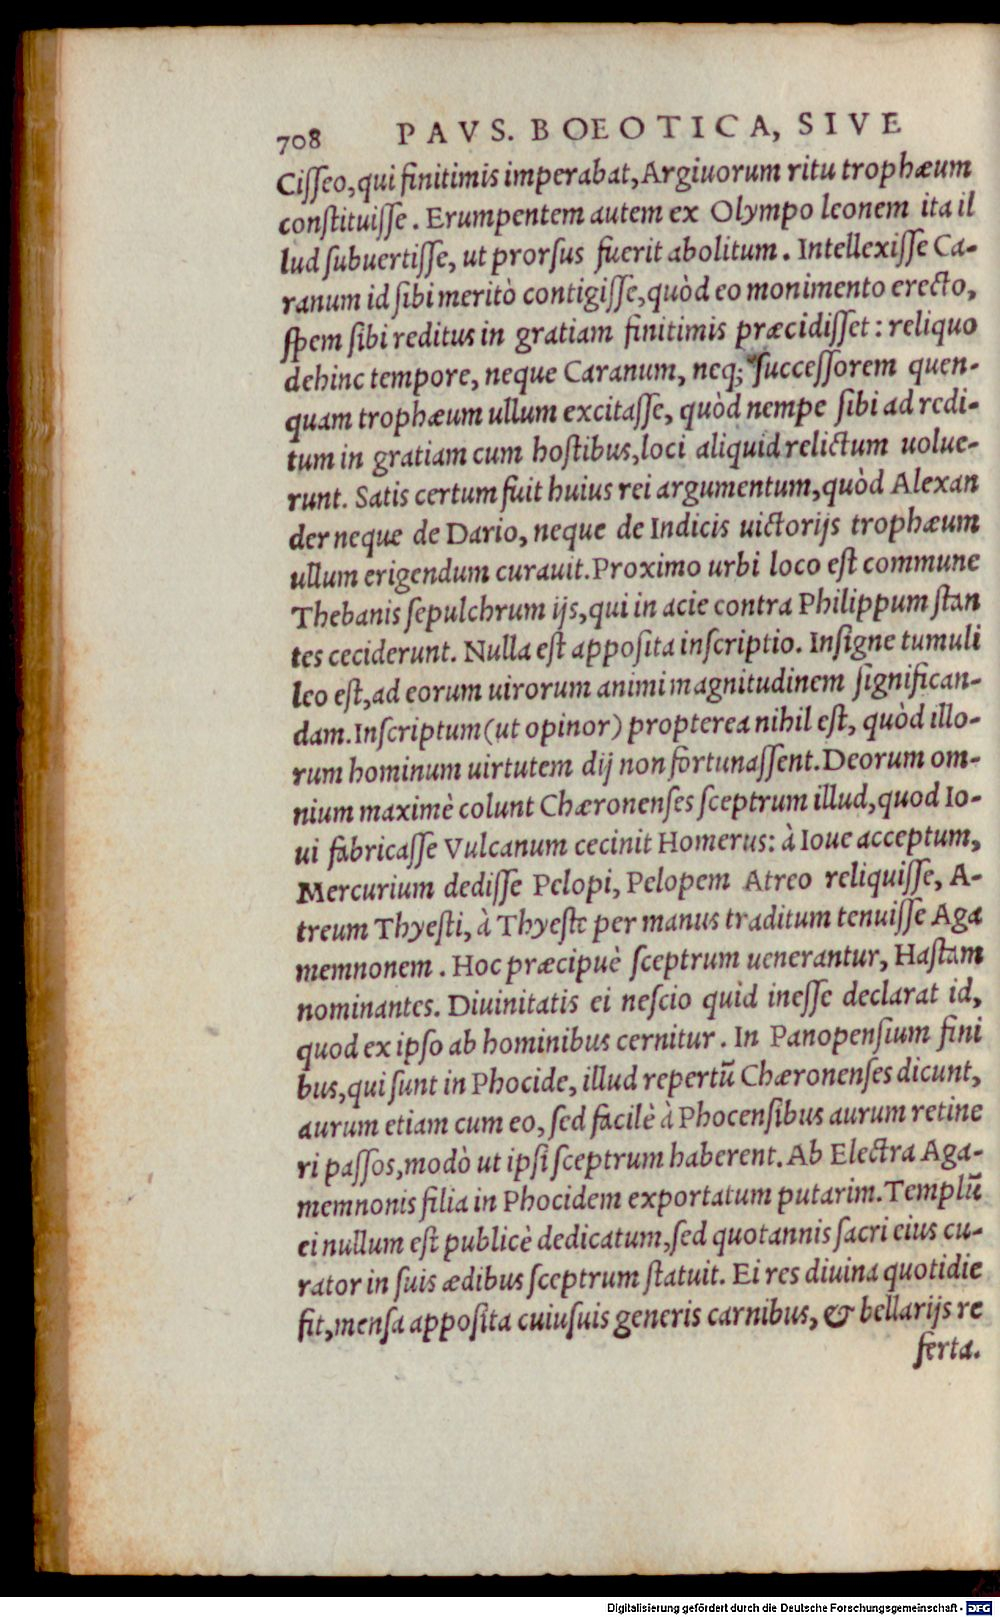 708 PAVS. BOEOTICA, SIVE
Ciſſeo, qui finitimis imperabat, Argiuorum ritu trophæum
conſtituiſſe. Erumpentem autem ex Olympo leonem ita il
lud ſubuertiſſe, ut prorſus fuerit abolitum. Intellexiſſe Ca-
ranum id ſibi meritò contigiſſe, quòd eo monimento erecto,
ſpem ſibi reditus in gratiam finitimis præcidiſſet: reliquo
dehinc tempore, neque Caranum, neq; ſucceſſorem quen-
quam trophæum ullum excitaſſe, quòd nempe ſibi ad redi-
tum in gratiam cum hoſtibus, loci aliquid relictum uolue-
runt. Satis certum fuit huius rei argumentum, quòd Alexan
der neque de Dario, neque de Indicis uictorijs trophæum
ullum erigendum curauit. Proximo urbi loco eſt commune
Thebanis ſepulchrum ijs, qui in acie contra Philippum ſtan
tes ceciderunt. Nulla eſt appoſita inſcriptio. Inſigne tumuli
leo eſt, ad eorum uirorum animi magnitudinem ſignifican-
dam. Inſcriptum (ut opinor) propterea nihil eſt, quòd illo-
rum hominum uirtutem dij non fortunaſſent. Deorum om-
nium maximè colunt Chæronenſes ſceptrum illud, quod Io-
ui fabricaſſe Vulcanum cecinit Homerus: à Ioue acceptum,
Mercurium dediſſe Pelopi, Pelopem Atreo reliquiſſe, A-
treum Thyeſti, à Thyeſte per manus traditum tenuiſſe Aga
memnonem. Hoc præcipuè ſceptrum uenerantur, Haſtam
nominantes. Diuinitatis ei neſcio quid ineſſe declarat id,
quod ex ipſo ab hominibus cernitur. In Panopenſium fini
bus, qui ſunt in Phocide, illud repertũ Chæronenſes dicunt,
aurum etiam cum eo, ſed facilè à Phocenſibus aurum retine
ri paſſos, modò ut ipſi ſceptrum haberent. Ab Electra Aga-
memnonis filia in Phocidem exportatum putarim. Templũ
ei nullum eſt publicè dedicatum, ſed quotannis ſacri eius cu-
rator in ſuis ædibus ſceptrum ſtatuit. Ei res diuina quotidie
fit, menſa appoſita cuiuſuis generis carnibus, & bellarijs re
ferta.
Digitalisierung gefördert durch die Deutsche Forschungsgemeinschaft - DFG